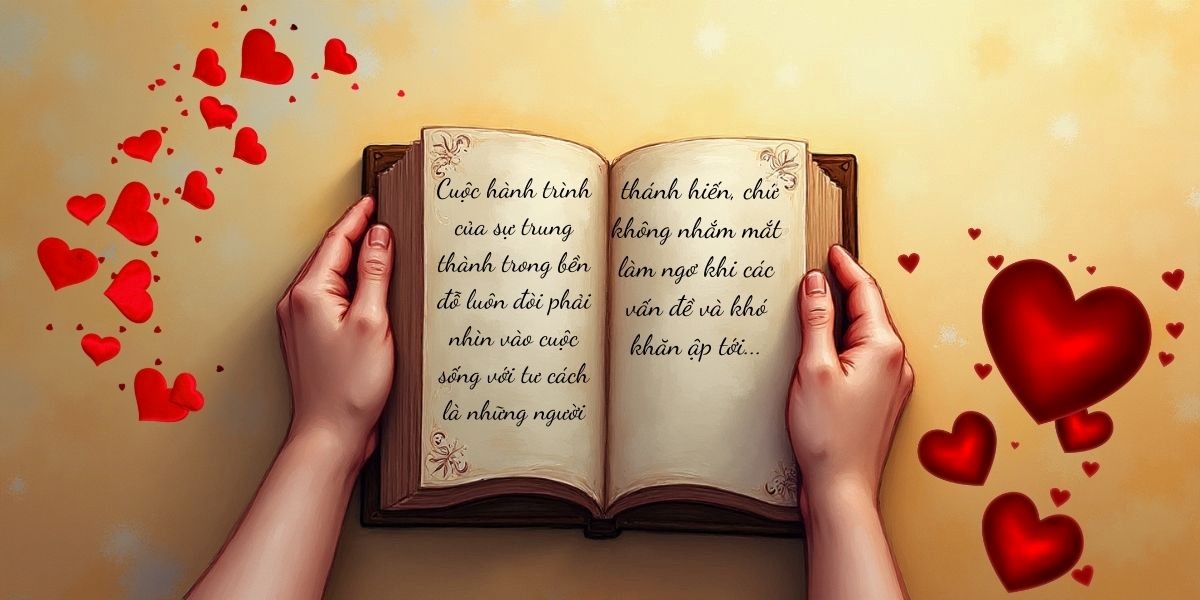 Cuộc hành trình
của sự trung
thành trong bền
đỗ luôn đòi phải
nhìn vào cuộc
sống với tư cách
là những người
thánh hiến, chứ
không nhắm mắt
làm ngơ khi các
vấn đề và khó
khăn ập tới...